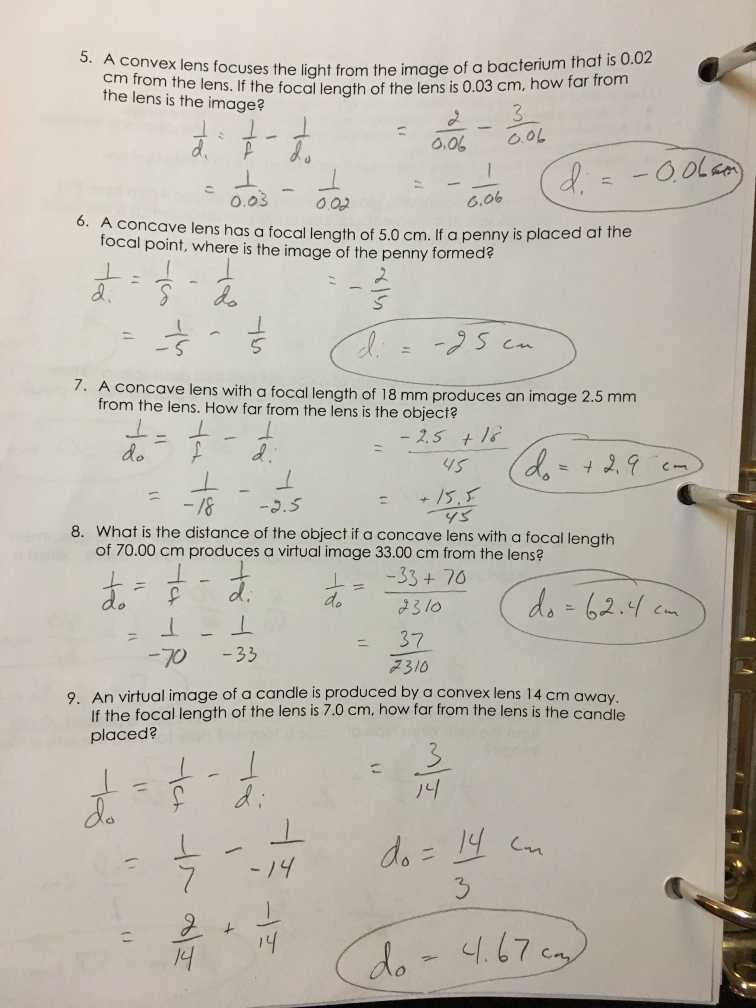 5. A convex lens focuses the light from the image of a bacterium that is 0.02
cm from the lens. If the focal length of the lens is 0.03 cm, how far from
the lens is the image?
1/di = 1/f - 1/do
= 2/0.06 - 3/0.06
= 1/0.03 - 1/0.02
= - 1/0.06
di = - 0.06 cm
6. A concave lens has a focal length of 5.0 cm. If a penny is placed at the
focal point, where is the image of the penny formed?
1/di = 1/f - 1/do
= - 2/5
= 1/-5 - 1/5
di = -25 cm
7. A concave lens with a focal length of 18 mm produces an image 2.5 mm
from the lens. How far from the lens is the object?
1/do = 1/f - 1/di
= -2.5 + 18/45
= 1/-18 - 1/-2.5
= +15.5/45
do = + 2.9 cm
8. What is the distance of the object if a concave lens with a focal length
of 70.00 cm produces a virtual image 33.00 cm from the lens?
1/do = 1/f - 1/di
1/do = -33 + 70/2310
= 1/-70 - 1/-33
= 37/2310
do = 62.4 cm
9. An virtual image of a candle is produced by a convex lens 14 cm away.
If the focal length of the lens is 7.0 cm, how far from the lens is the candle
placed?
1/do = 1/f - 1/di
= 3/14
= 1/7 - 1/-14
do = 14/3 cm
= 2/14 + 1/14
do = 4.67 cm